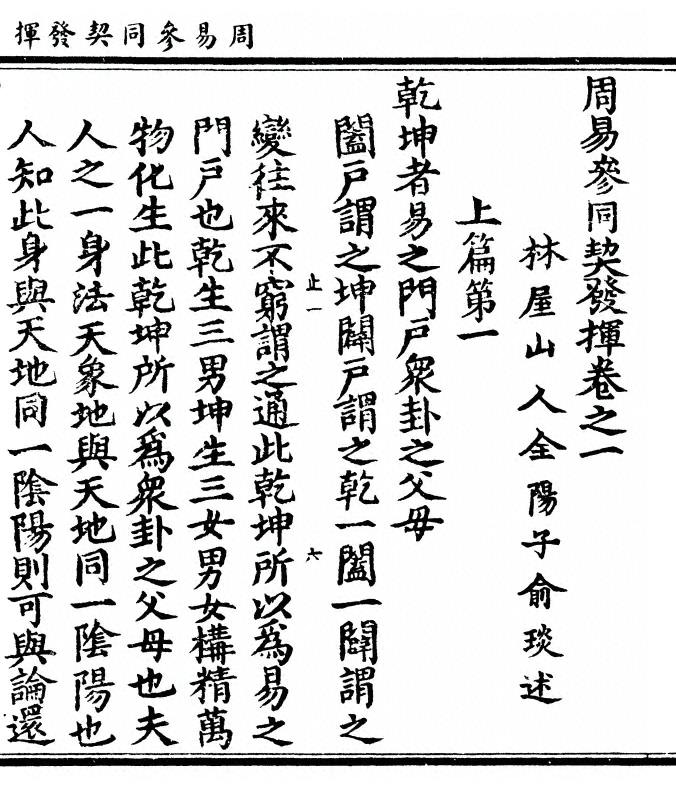 周易參同契發揮
周易參同契發揮卷之一
林屋山人全陽子俞琰述
上篇第一
乾坤者易之門戸衆卦之父母
闔戸謂之坤闢戸謂之乾一闔一闢謂之
止一
六
變往來不窮謂之通此乾坤所以爲易之
門戸也乾生三男坤生三女男女構精萬
物化生此乾坤所以爲衆卦之父母也夫
人之一身法天象地與天地同一陰陽也
人知此身與天地同一陰陽則可與論還